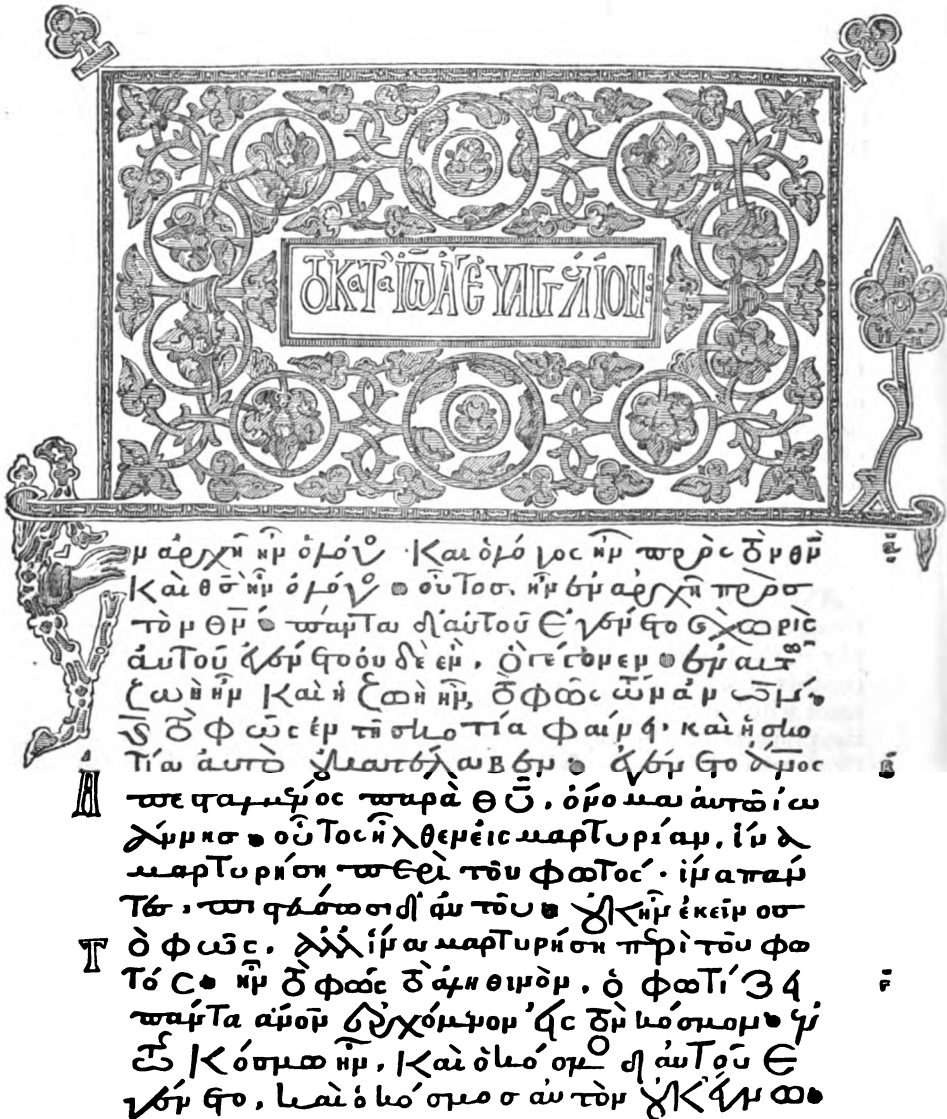 τὸ Κατὰ ἸΩΑ ΕΥΑΓΓΕΛΙΟΝ:
ν ἀρχῆ ἦν ὁ λόγος · Καὶ ὁ λόγος ἦν πρὸς τὸν θν̅
Καὶ θσ̅ ἦν ὁ λόγος • οὗτοσ, ἦν ἐν ἀρχῆ πρὸσ
τὸν θν̅ • πάντα δι αὐτοῦ ἐγένετο καὶ χωρὶς
αὐτοῦ ἐγένετο ουδὲ ἐν, ὃ γέγονεν • ἐν αυτῶ
ζωὴ ἦν Καὶ ἡ ζωὴ ἦν, τὸ φῶς τῶν ἀν̅ων •
Καὶ τὸ φῶς ἐν τῆ σκοτία φαίνει · καὶ ἡ σκο
τία αυτὸ οὐ κατέλαβεν • ἐγένετο ἄν̅ος
ἀπεσταλμένος παρὰ θυ̅, ὄνομα αὐτῶ ἰω
άννησ • οὗτος ἦλθεν εἰς μαρτυρίαν, ἵνα
μαρτυρήση περὶ τοῦ φωτός · ἵνα παν
τεσ, πιστεύσωσι δι αὐτοῦ • οὐκ ἦν ἐκεῖνοσ
τὸ φῶς, ἀλλ ἵνα μαρτυρήση περὶ τοῦ φω
τός • ἦν τὸ φῶς τὸ ἀληθινὸν, ὃ φωτίζει
πάντα ἀν̅ον ἐρχόμενον εἰς τὸν κόσμον • ἐν
τῶ Κόσμω ἦν, Καὶ ὁ κόσμος δι αὐτοῦ ἐ
γένετο, καὶ ὁ κόσμοσ αὐτὸν οὐκ ἔγνω •